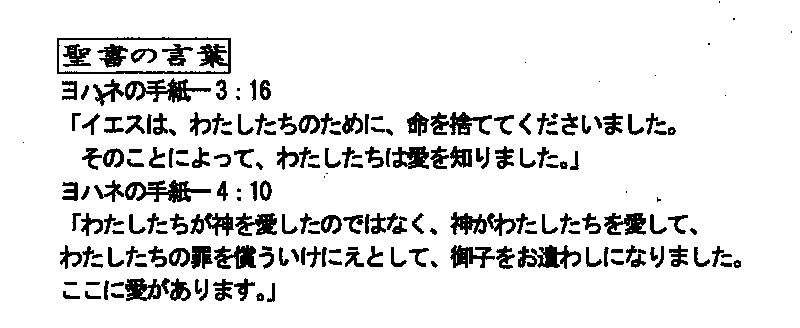 聖書の言葉
ヨハネの手紙一3:16
「イエスは、わたしたちのために、命を捨ててくださいました。
そのことによって、わたしたちは愛を知りました。」
ヨハネの手紙一4:10
「わたしたちが神を愛したのではなく、神がわたしたちを愛して、
わたしたちの罪を償ういけにえとして、御子をお遣わしになりました。
ここに愛があります。」